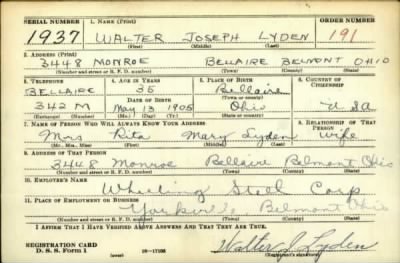 SERIAL NUMBER 1. NAME (Print) ORDER NUMBER
1937 WALTER JOSEPH LYDEN 191
(First) (Middle) (Last)
2. ADDRESS (Print)
3448 MONROE BELLAIRE BELMONT OHIO
(Number and street or R. F. D. number) (Town) (County) (State)
3. TELEPHONE 4. AGE IN YEARS 5. PLACE OF BIRTH 6. COUNTRY OF CITIZENSHIP
BELLAIRE 35 Bellaire
DATE OF BIRTH (Town or county)
342 M May 13 1905 Ohio U SA
(Exchange) (Number) (Mo.) (Day) (Yr.) (State or country)
7. NAME OF PERSON WHO WILL ALWAYS KNOW YOUR ADDRESS 8. RELATIONSHIP OF THAT PERSON
Mrs Rita Mary Lyden Wife
(Mr., Mrs., Miss) (First) (Middle) (Last)
9. ADDRESS OF THAT PERSON
3448 Monroe Bellaire Belmont Ohio
(Number and street or R. F. D. number) (Town) (County) (State)
10. EMPLOYER'S NAME
Wheeling Steel Corp
11. PLACE OF EMPLOYMENT OR BUSINESS
Yorkville Belmont Ohio
(Number and street or R. F. D. number) (Town) (County) (State)
I AFFIRM THAT I HAVE VERIFIED ABOVE ANSWERS AND THAT THEY ARE TRUE.
REGISTRATION CARD
D. S. S. Form 1 (over) Walter J Lyden
(Registrant's signature)